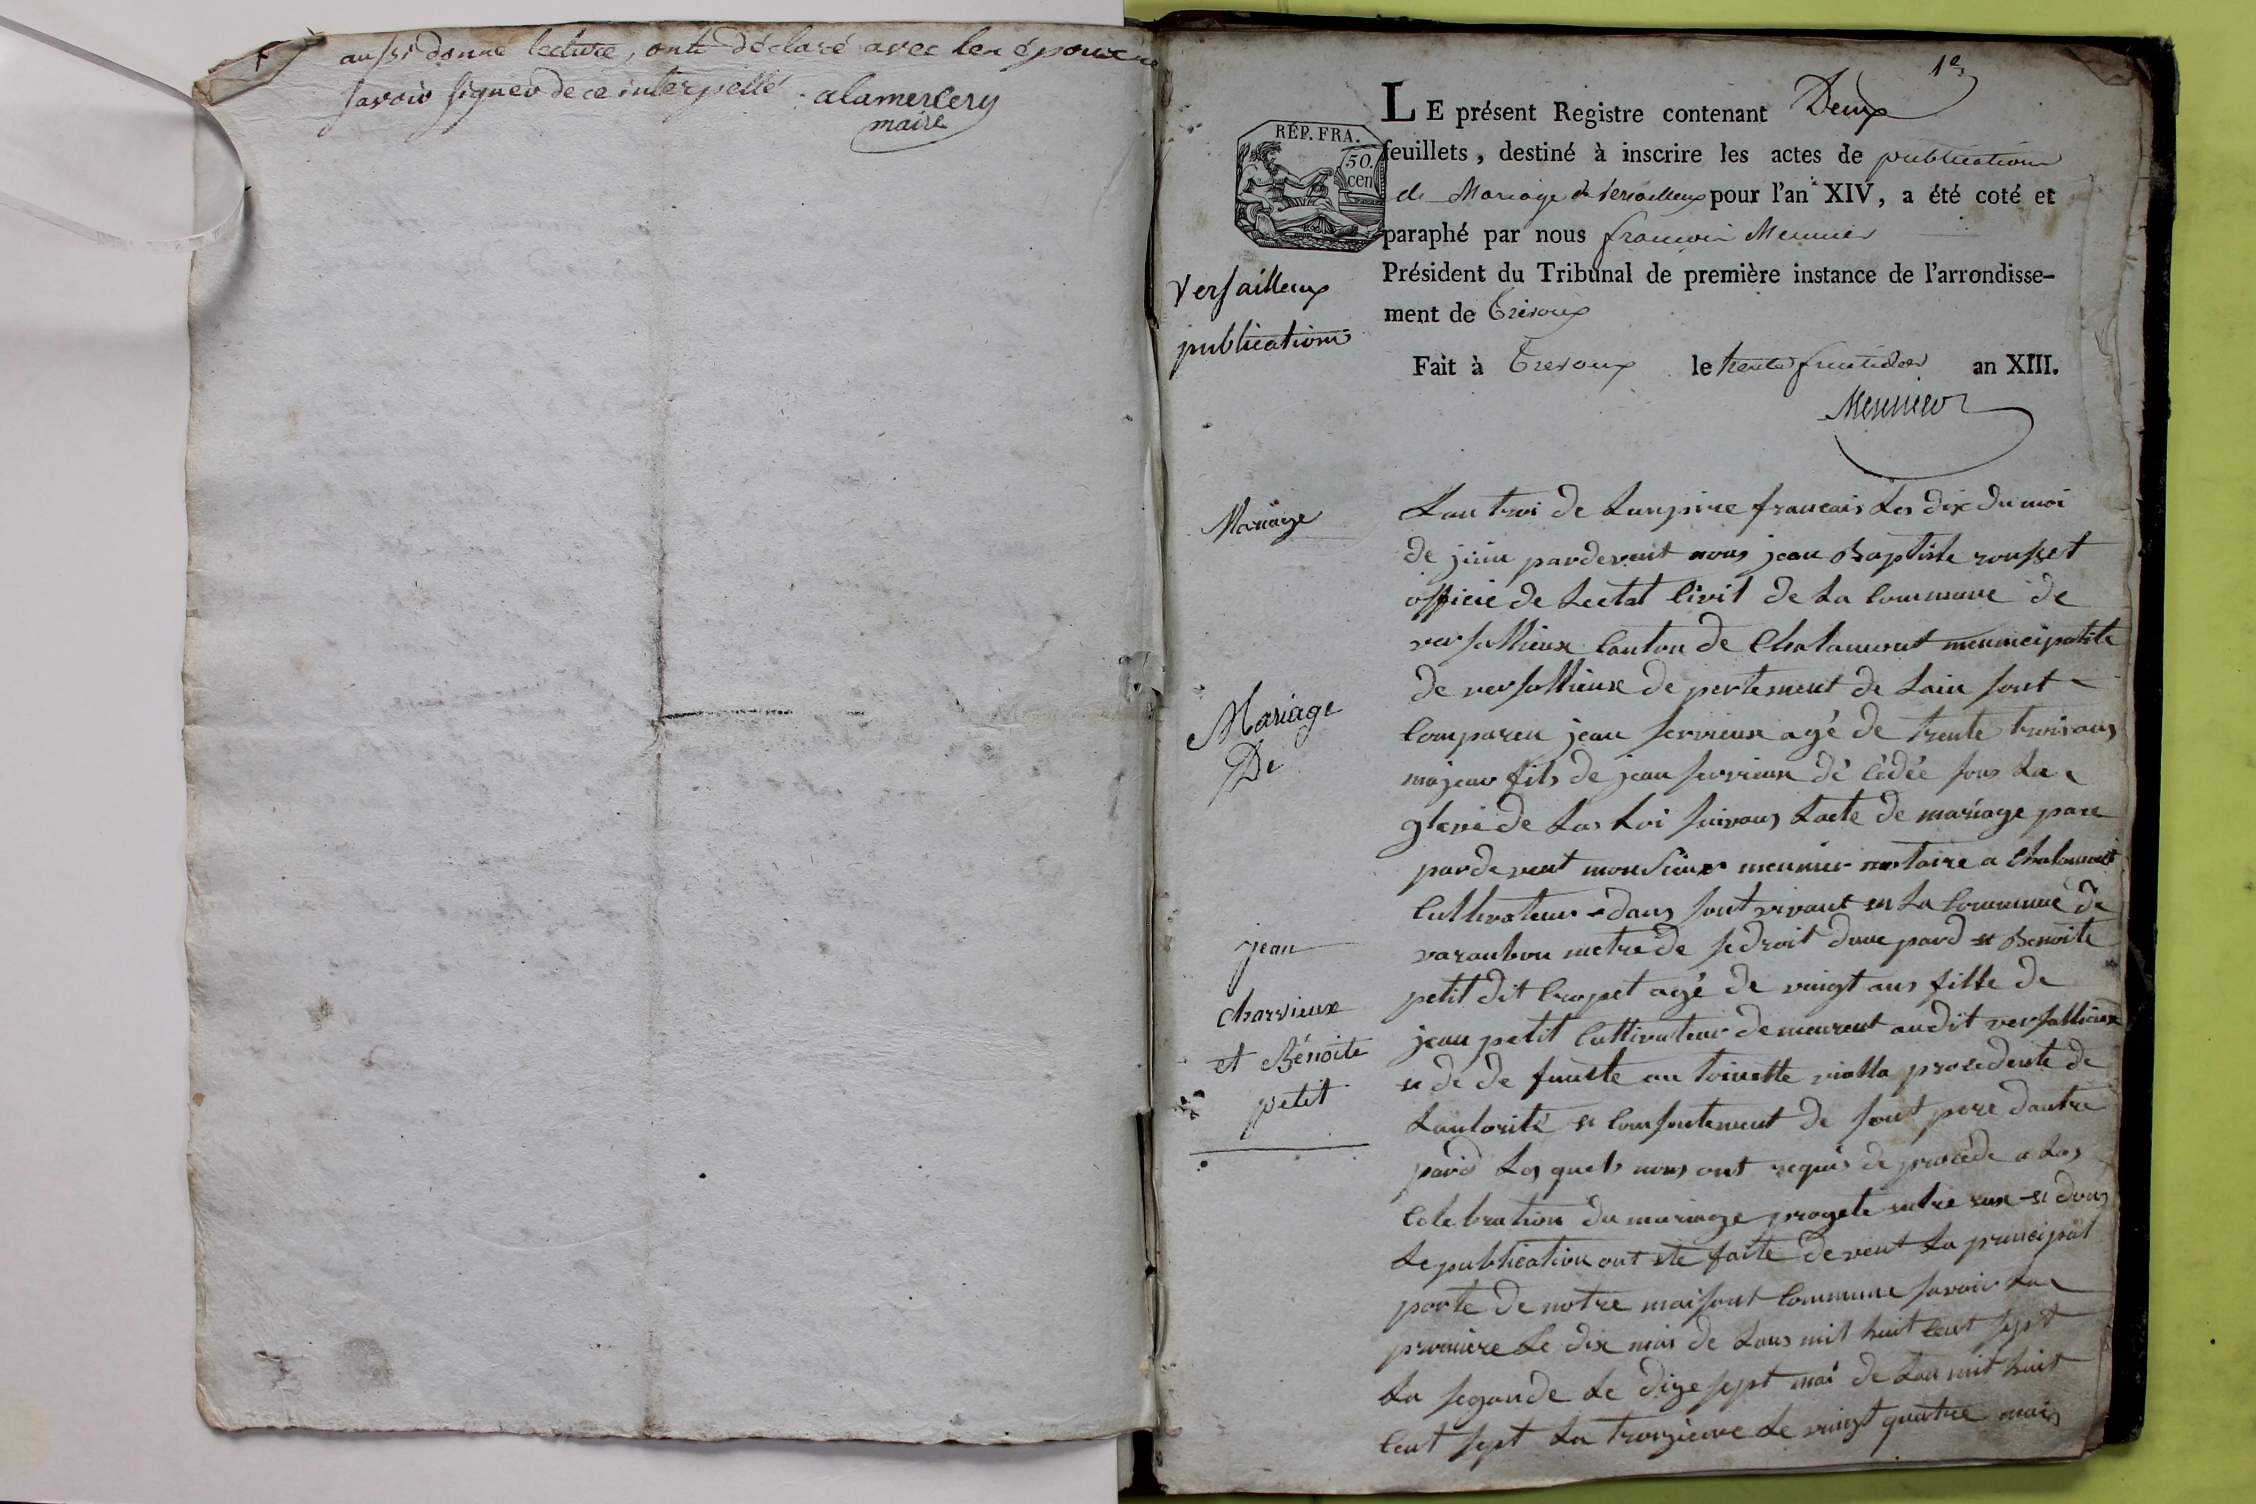 aussi donné lecture, ont déclaré avec les époux ne
savoir signer de ce interpellé. alamercery
maire
1er
LE présent Registre contenant Deux
feuillets, destiné à inscrire les actes de publications
de Mariage de Versailleux pour l'an XIV, a été coté et
paraphé par nous françois Meunier
Président du Tribunal de première instance de l'arrondisse-
ment de Trévoux
Fait à Trevoux le trente fructidor an XIII.
Meunier
RÉP. FRA.
50.
cen
Versailleux
publications
Mariage
Mariage
De
jean
charvieux
et Bénoite
petit
Lan troi de Lanpire francais Les dix du moi
de juin pardevent nous jean Baptiste rousset
officié de Leetat Civil de La Commune de
versallieux Canton de Chalamont meunicipalité
de versallieux depertement de Lain sont
Comparen jean servieux agé de trente trois ans
majeur fils de jean servieux dé cédée sous La
glaive de Las Loi suivans Lacte de mariage pace
pardevent monsieur meunier notaire a Chalamont
Cultivateur dans sont vivant en La Commune de
varanbon metre de se droit dune pard et Benoite
petit dit Cropet agé de vingt ans fille de
jean petit Cultivateur demeurent audit versallieux
et de de funte antoinette vialla procedente de
Lautorité et Consentement de sont pere dautre
pard Los quels nous ont requis de procéde a Las
Celebration du mariage progete entre eux et dons
Le publication ont ete faite devent La principal
porte de notre maisont Commune savoir La
promiere Le dix mai de Lans mil huit Cent sept
La segonde Le dize sept mai de Lan mil huit
Cent sept La troizieme Le vingt quatre mais